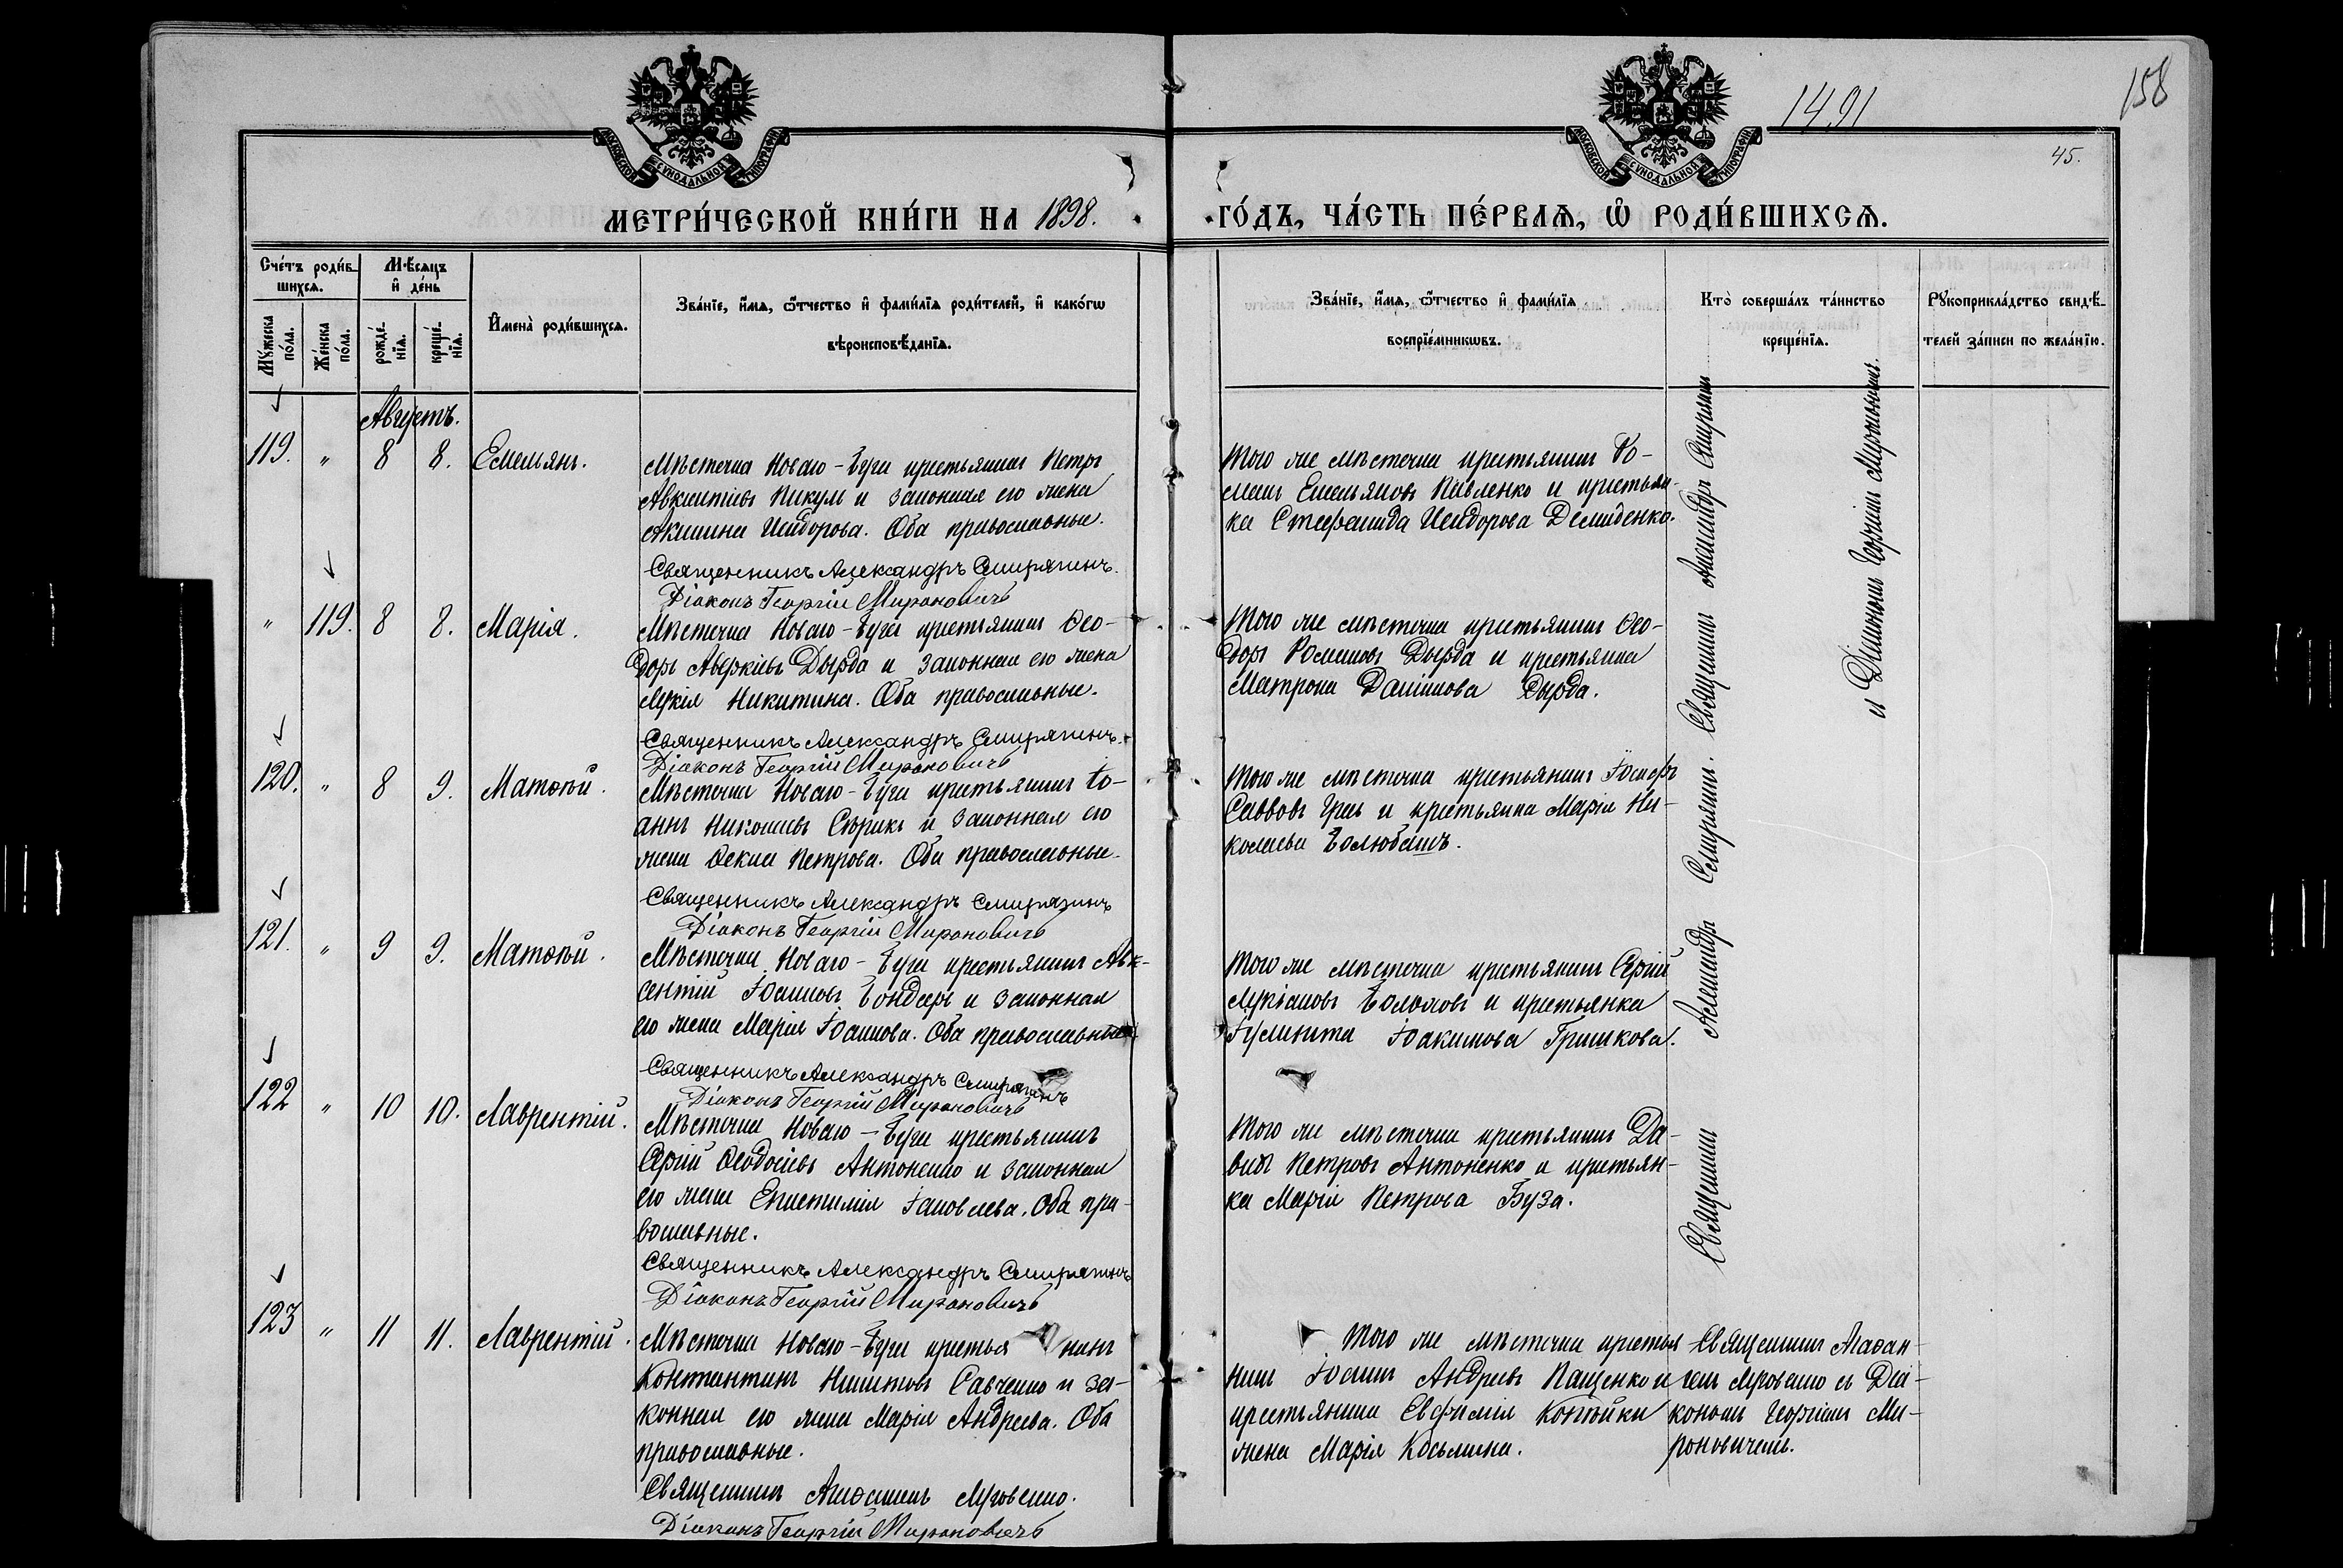 1491
158
45.
МОСКОВСКОЙ СѴНОДАЛЬНОЙ ТИПОГРАФІИ
МОСКОВСКОЙ СѴНОДАЛЬНОЙ ТИПОГРАФІИ
МЕТРИ́ЧЕСКОЙ КНИ́ГИ НА 1898.
ГО́ДЪ, ЧА́СТЬ ПЕ́РВАѦ, Ѽ РОДИ́ВШИХСѦ.
Сче́тъ роди́в-
шихсѧ.
Мꙋ́жеска по́ла.
Же́нска по́ла.
Мѣ́сѧцъ
и҆ де́нь
рожде́-
нїѧ.
креще́-
нїѧ.
И҆мена̀ роди́вшихсѧ.
Зва́нїе, и҆́мѧ, ѻ҆́тчество и҆ фамилїѧ роди́телей, и҆ како́гѡ
вѣроисповѣ́данїѧ.
Зва́нїе, и҆́мѧ, ѻ҆́тчество и҆ фами́лїѧ
воспрїе́мникѡвъ.
Кто̀ соверша́лъ та́инство
креще́нїѧ.
Рꙋкоприкла́дство свидѣ́-
телей за́писи по жела́нїю.
Августъ.
119. " 8 8. Емельянъ.
Мѣстечка Новаго-Буга крестьянинъ Петръ
Пикуль и законная его жена
Акилина Исидорова. Оба православные.
Священникъ Александръ Смирягинъ.
Діаконъ Георгій Мироновичъ
Того же мѣстечка крестьянинъ Ро-
манъ Емельяновъ Павленко и крестьян-
ка Стефанида Исидорова Демиденко.
" 119. 8 8. Марія.
Мѣстечка Новаго-Буга крестьянинъ Ѳео-
доръ Аверкіевъ Дырда и законная его жена
Лукія Никитина. Оба православные.
Священникъ Александръ Смирягинъ.
Діаконъ Георгій Мироновичъ
Того же мѣстечка крестьянинъ Ѳео-
доръ Романовъ Дырда и крестьянка
Матрона Даніилова Дырда.
120. " 8 9. Матѳѣй.
Мѣстечка Новаго-Буга крестьянинъ Іо-
аннъ Николаевъ Сѣрикъ и законная его
жена Ѳекла Петрова. Оба православные.
Священникъ Александръ Смирягинъ
Діаконъ Георгій Мироновичъ
Того же мѣстечка крестьянинъ Іосифъ
Саввовъ и крестьянка Марія Ни-
колаева Болюбашъ.
121. " 9 9. Матѳѣй.
Мѣстечка Новаго-Буга крестьянинъ Авк-
сентій Іоанновъ Бондарь и законная
его жена Марія Іоаннова. Оба православные.
Священникъ Александръ Смирягинъ
Діаконъ Георгій Мироновичъ
Того же мѣстечка крестьянинъ Сергій
Лукіановъ и крестьянка
Іулитта Іоакимова Гришкова.
122 " 10 10. Лаврентій.
Мѣстечка Новаго-Буга крестьянинъ
Сергій Ѳеодосіевъ Антоненко и законная
его жена Епистимія Іаковлева. Оба пра-
вославные.
Священникъ Александръ Смирягинъ
Діаконъ Георгій Мироновичъ
Того же мѣстечка крестьянинъ Да-
видъ Петровъ Антоненко и крестьян-
ка Марія Петрова Буза.
123 " 11 11. Лаврентій.
Мѣстечка Новаго-Буга крестьянинъ
Константинъ Никитовъ Савченко и за-
конная его жена Марія Андреева. Оба
православные.
Священникъ Агаѳангелъ Луговенко.
Діаконъ Георгій Мироновичъ
Того же мѣстечка крестья-
нинъ Іоаннъ Андреевъ Пащенко и
крестьянина Евфимія Копѣйки
жена Марія Косьмина.
Священникъ Агаѳан-
гелъ Луговенко съ Діа-
кономъ Георгіемъ Ми-
роновичемъ.
Священникъ Александръ Смирягинъ. Священникъ Александръ Смирягинъ
съ Діакономъ Георгіемъ Мироновичемъ.